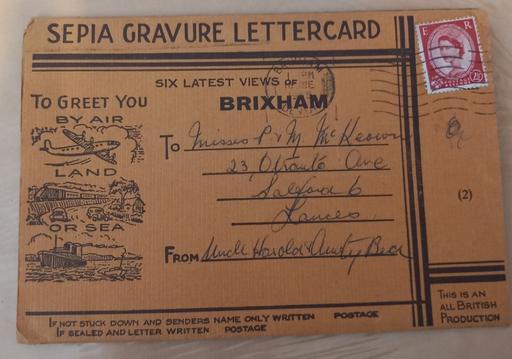 SEPIA GRAVURE LETTERCARD
E R
2½
SIX LATEST VIEWS OF
BRIXHAM
TO GREET YOU
BY AIR
LAND
OR SEA
To Misses P & M McKeown
23 Otranto Ave
Salford 6
Lancs
FROM Uncle Harold & Aunty Bea
(2)
IF NOT STUCK DOWN AND SENDERS NAME ONLY WRITTEN POSTAGE
IF SEALED AND LETTER WRITTEN POSTAGE
THIS IS AN
ALL BRITISH
PRODUCTION